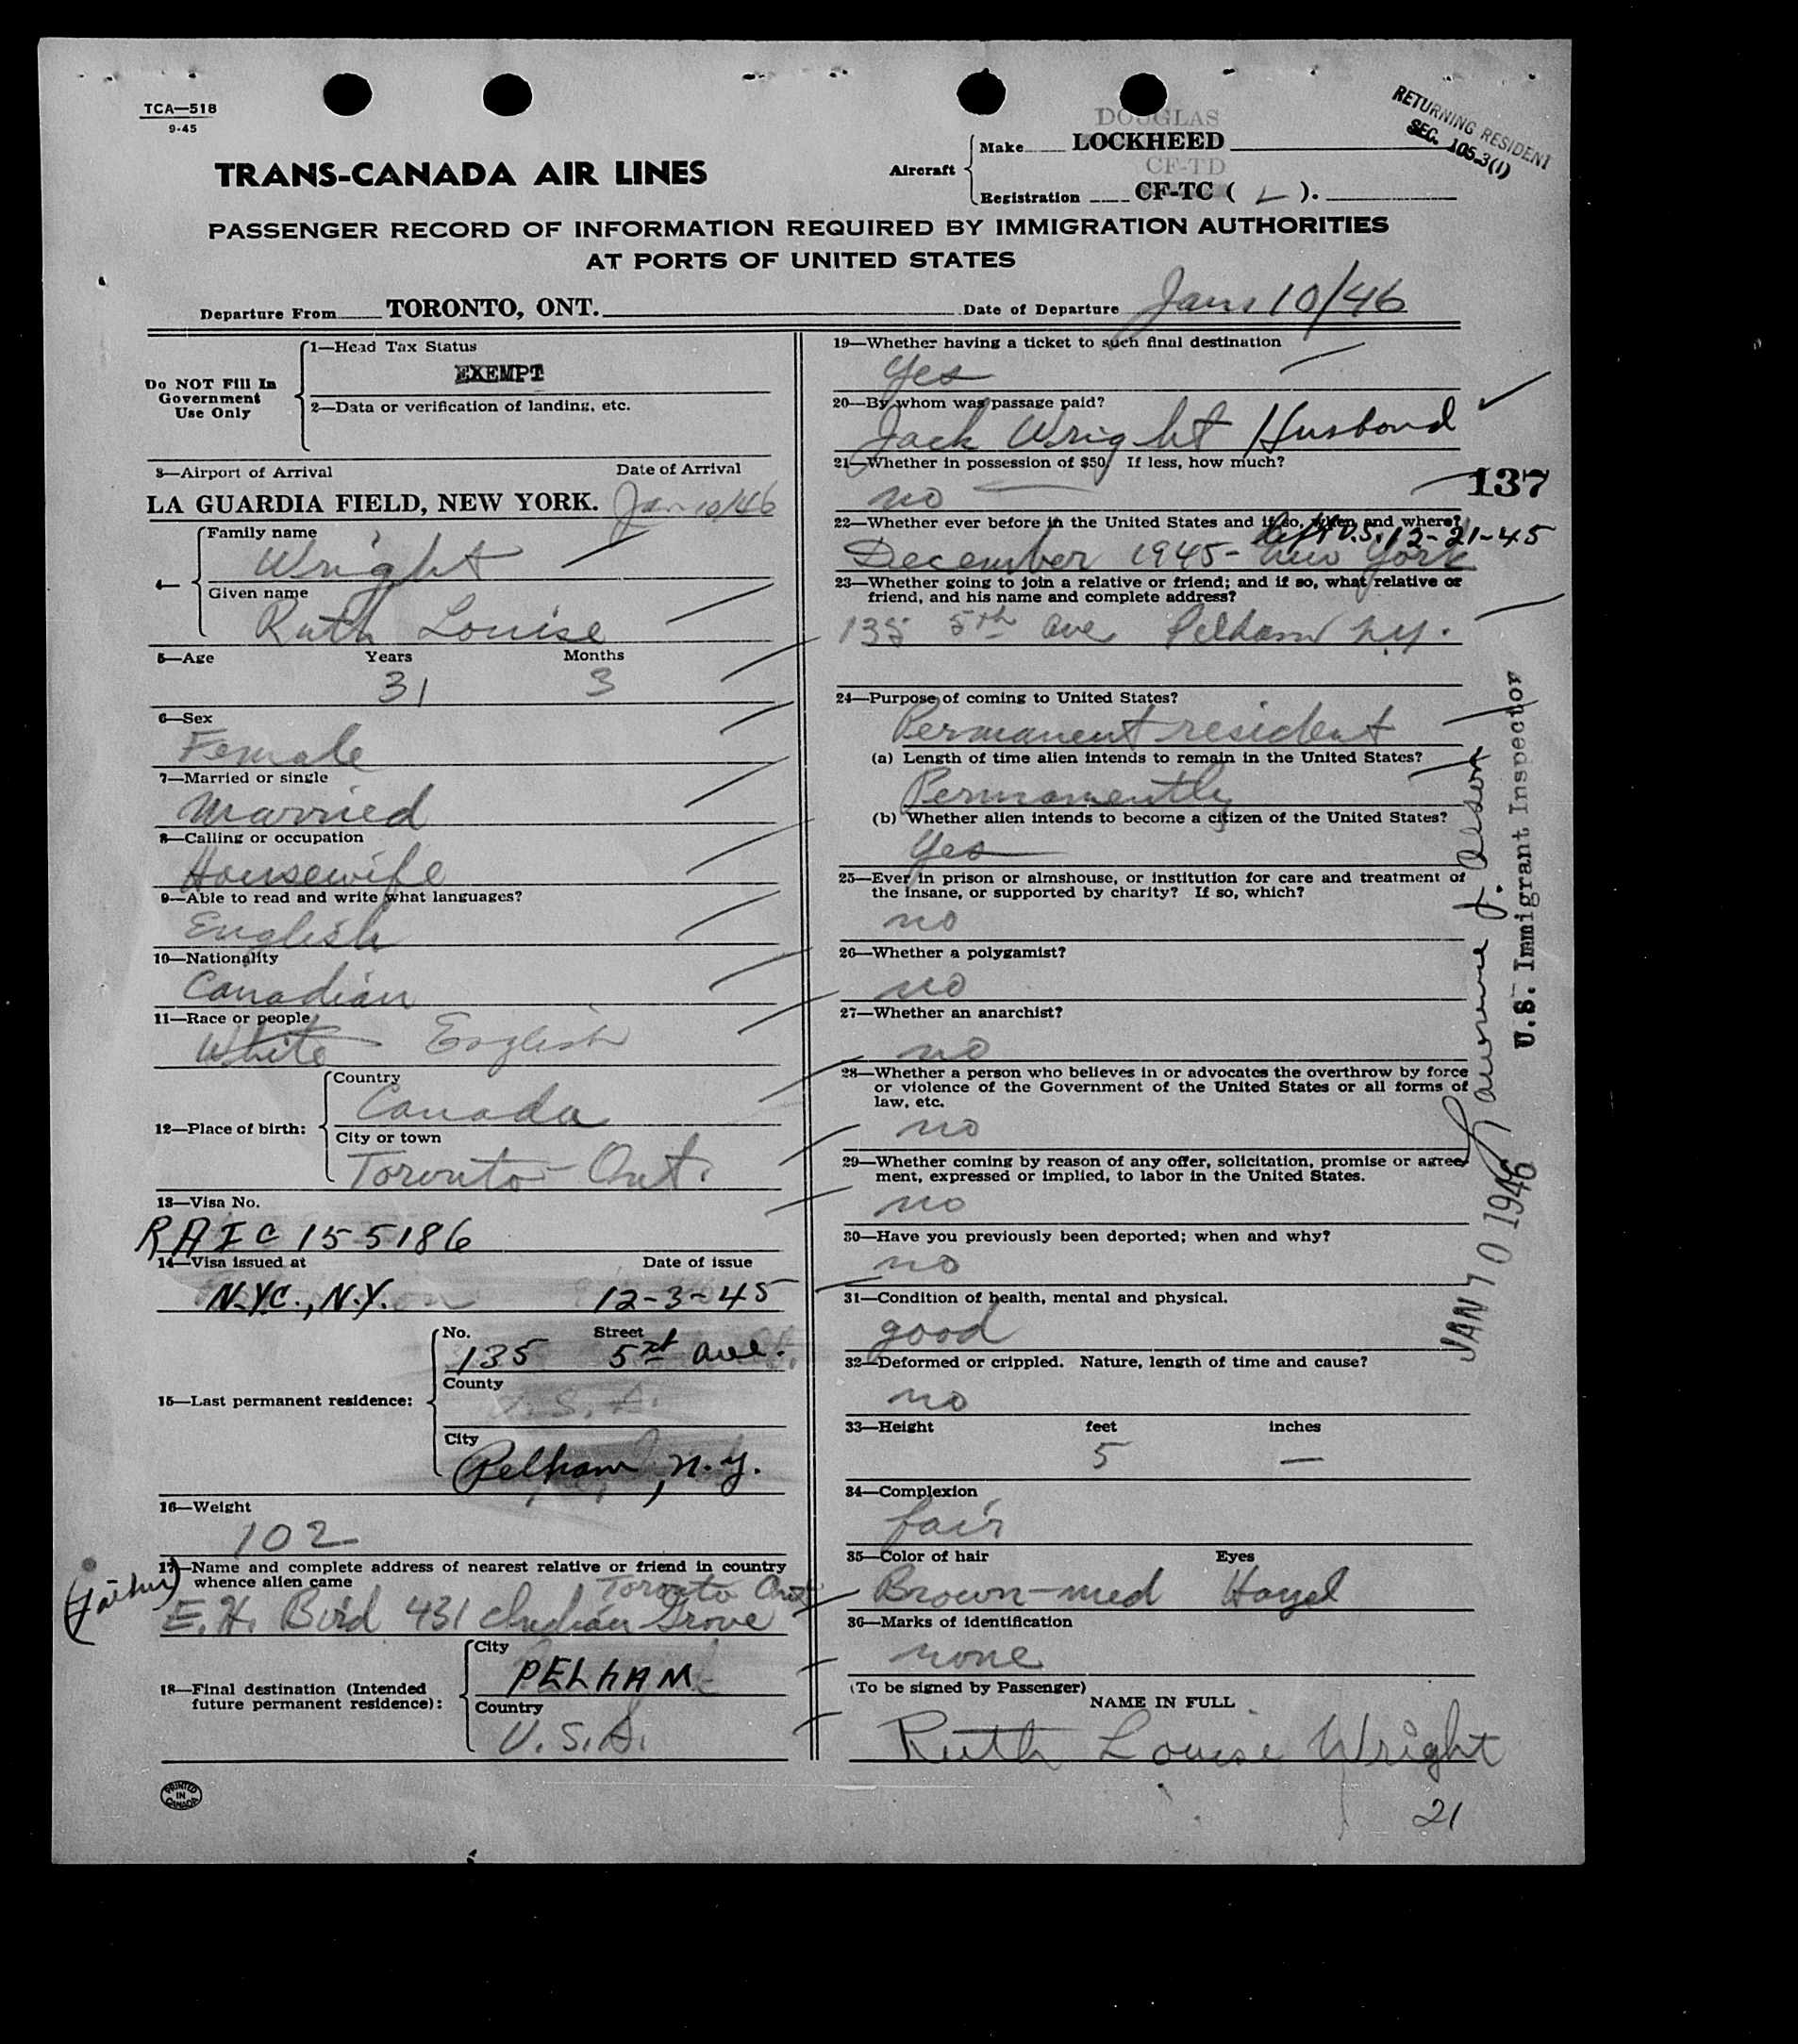 TCA—518
9-45
DOUGLAS
Aircraft
Make LOCKHEED
CF-TD
Registration CF-TC ( L ).
RETURNING RESIDENT
SEC. 105.3(1)
TRANS-CANADA AIR LINES
PASSENGER RECORD OF INFORMATION REQUIRED BY IMMIGRATION AUTHORITIES
AT PORTS OF UNITED STATES
Departure From TORONTO, ONT. Date of Departure Jan. 10/46
Do NOT Fill In
Government
Use Only
1—Head Tax Status
EXEMPT
2—Data or verification of landing, etc.
3—Airport of Arrival Date of Arrival
LA GUARDIA FIELD, NEW YORK. Jan 10/46
4—
Family name
Wright
Given name
Ruth Louise
5—Age Years Months
31 3
6—Sex
Female
7—Married or single
Married
8—Calling or occupation
Housewife
9—Able to read and write what languages?
English
10—Nationality
Canadian
11—Race or people
White English
12—Place of birth:
Country
Canada
City or town
Toronto - Ont.
13—Visa No.
RAIC 155186
14—Visa issued at Date of issue
N.Y.C., N.Y. 12-3-45
15—Last permanent residence:
No. Street
135 5 ave.
County
U.S.A.
City
Pelham, N.Y.
16—Weight
102
17—Name and complete address of nearest relative or friend in country
whence alien came
Toronto Ont
(Father)
E. H. Bird 431 Indian Grove
18—Final destination (Intended
future permanent residence):
City
PELHAM
Country
U.S.A.
PRINTED
IN
CANADA
19—Whether having a ticket to such final destination
Yes
20—By whom was passage paid?
Jack Wright Husband
21—Whether in possession of $50, If less, how much?
no
137
22—Whether ever before in the United States and if so, when and where?
left U.S. 12-21-45
December 1945 - New York
23—Whether going to join a relative or friend; and if so, what relative or
friend, and his name and complete address?
135 5th ave Pelham N.Y.
24—Purpose of coming to United States?
Permanent resident
(a) Length of time alien intends to remain in the United States?
Permanently
(b) Whether alien intends to become a citizen of the United States?
Yes
25—Ever in prison or almshouse, or institution for care and treatment of
the insane, or supported by charity? If so, which?
no
26—Whether a polygamist?
no
27—Whether an anarchist?
no
28—Whether a person who believes in or advocates the overthrow by force
or violence of the Government of the United States or all forms of
law, etc.
no
29—Whether coming by reason of any offer, solicitation, promise or agree-
ment, expressed or implied, to labor in the United States.
no
30—Have you previously been deported; when and why?
no
31—Condition of health, mental and physical.
good
32—Deformed or crippled. Nature, length of time and cause?
no
33—Height feet inches
5 —
34—Complexion
fair
35—Color of hair Eyes
Brown-med Hazel
36—Marks of identification
none
(To be signed by Passenger)
NAME IN FULL
Ruth Louise Wright
21
Lawrence J.
U.S. Immigrant Inspector
JAN 10 1946